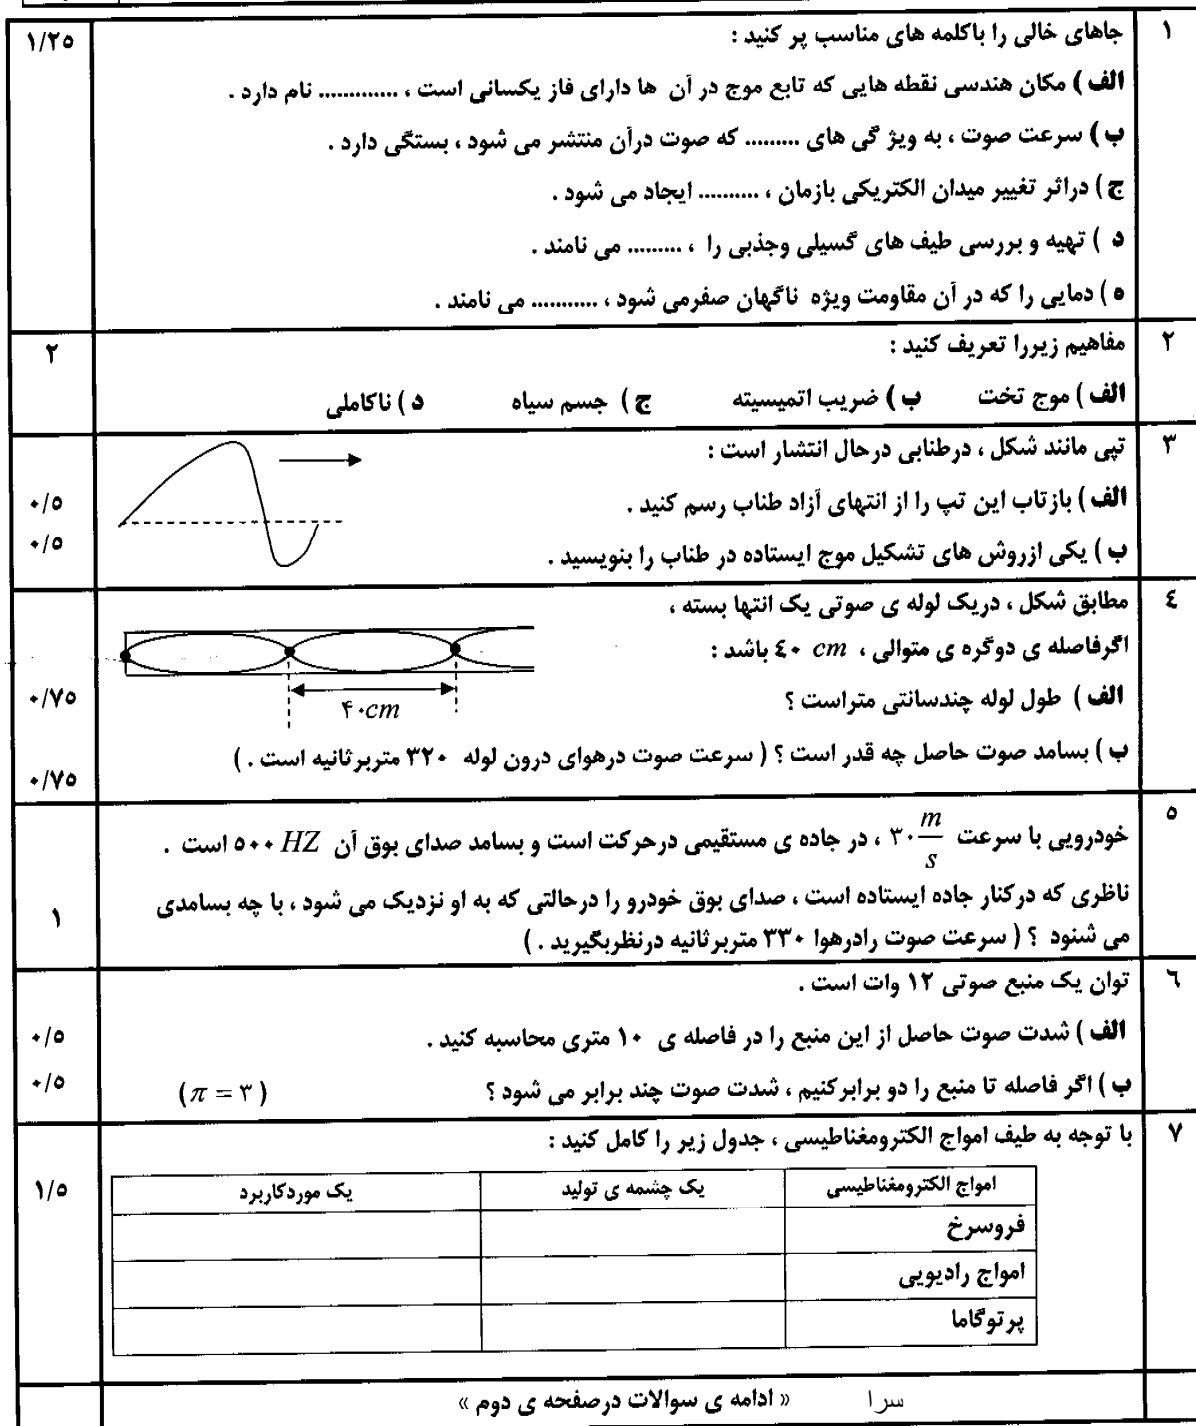 ۱ جاهای خالی را باکلمه های مناسب پر کنید : ۱/۲۵
الف ) مکان هندسی نقطه هایی که تابع موج در آن ها دارای فاز یکسانی است ، ............. نام دارد .
ب ) سرعت صوت ، به ویژ گی های ......... که صوت درآن منتشر می شود ، بستگی دارد .
ج ) دراثر تغییر میدان الکتریکی بازمان ، .......... ایجاد می شود .
د ) تهیه و بررسی طیف های گسیلی وجذبی را ، ......... می نامند .
ه ) دمایی را که در آن مقاومت ویژه ناگهان صفرمی شود ، ........... می نامند .
۲ مفاهیم زیررا تعریف کنید : ۲
الف ) موج تخت ب ) ضریب اتمیسیته ج ) جسم سیاه د ) ناکاملی
۳ تپی مانند شکل ، درطنابی درحال انتشار است :
الف ) بازتاب این تپ را از انتهای آزاد طناب رسم کنید . ۰/۵
ب ) یکی ازروش های تشکیل موج ایستاده در طناب را بنویسید . ۰/۵
٤ مطابق شکل ، دریک لوله ی صوتی یک انتها بسته ،
اگرفاصله ی دوگره ی متوالی ، ٤۰ cm باشد :
الف ) طول لوله چندسانتی متراست ؟ ۰/۷۵
۴۰cm
ب ) بسامد صوت حاصل چه قدر است ؟ ( سرعت صوت درهوای درون لوله ۳۲۰ متربرثانیه است . ) ۰/۷۵
۵ خودرویی با سرعت ۳۰ m/s ، در جاده ی مستقیمی درحرکت است و بسامد صدای بوق آن ۵۰۰ HZ است .
ناظری که درکنار جاده ایستاده است ، صدای بوق خودرو را درحالتی که به او نزدیک می شود ، با چه بسامدی ۱
می شنود ؟ ( سرعت صوت رادرهوا ۳۳۰ متربرثانیه درنظربگیرید . )
٦ توان یک منبع صوتی ۱۲ وات است .
الف ) شدت صوت حاصل از این منبع را در فاصله ی ۱۰ متری محاسبه کنید . ۰/۵
ب ) اگر فاصله تا منبع را دو برابرکنیم ، شدت صوت چند برابر می شود ؟ ( π = ۳ ) ۰/۵
۷ با توجه به طیف امواج الکترومغناطیسی ، جدول زیر را کامل کنید : ۱/۵
امواج الکترومغناطیسی یک چشمه ی تولید یک موردکاربرد
فروسرخ
امواج رادیویی
پرتوگاما
سرا « ادامه ی سوالات درصفحه ی دوم »